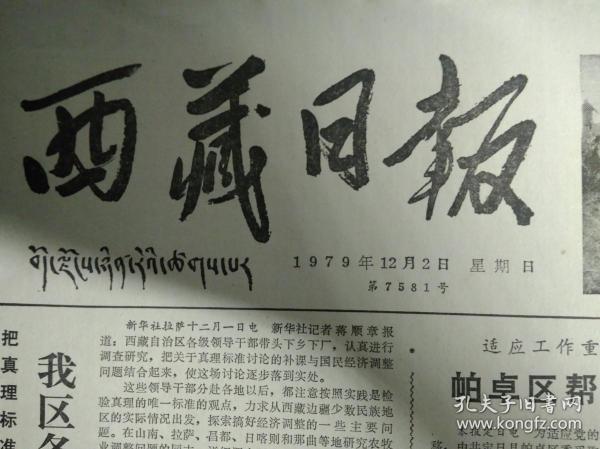 西藏日報
1979年12月2日 星期日
第7581号
把真理标准
我区各
新华社拉萨十二月一日电 新华社记者蒋顺章报
道：西藏自治区各级领导干部带头下乡下厂，认真进行
调查研究，把关于真理标准讨论的补课与国民经济调整
问题结合起来，使这场讨论逐步落到实处。
这些领导干部分赴各地以后，都注意按照实践是检
验真理的唯一标准的观点，力求从西藏边疆少数民族地
区的实际情况出发，探索搞好经济调整的一些主要问
题。在山南、拉萨、昌都、日喀则和那曲等地研究农牧
适应工作重
帕卓区帮
孔夫子旧书网